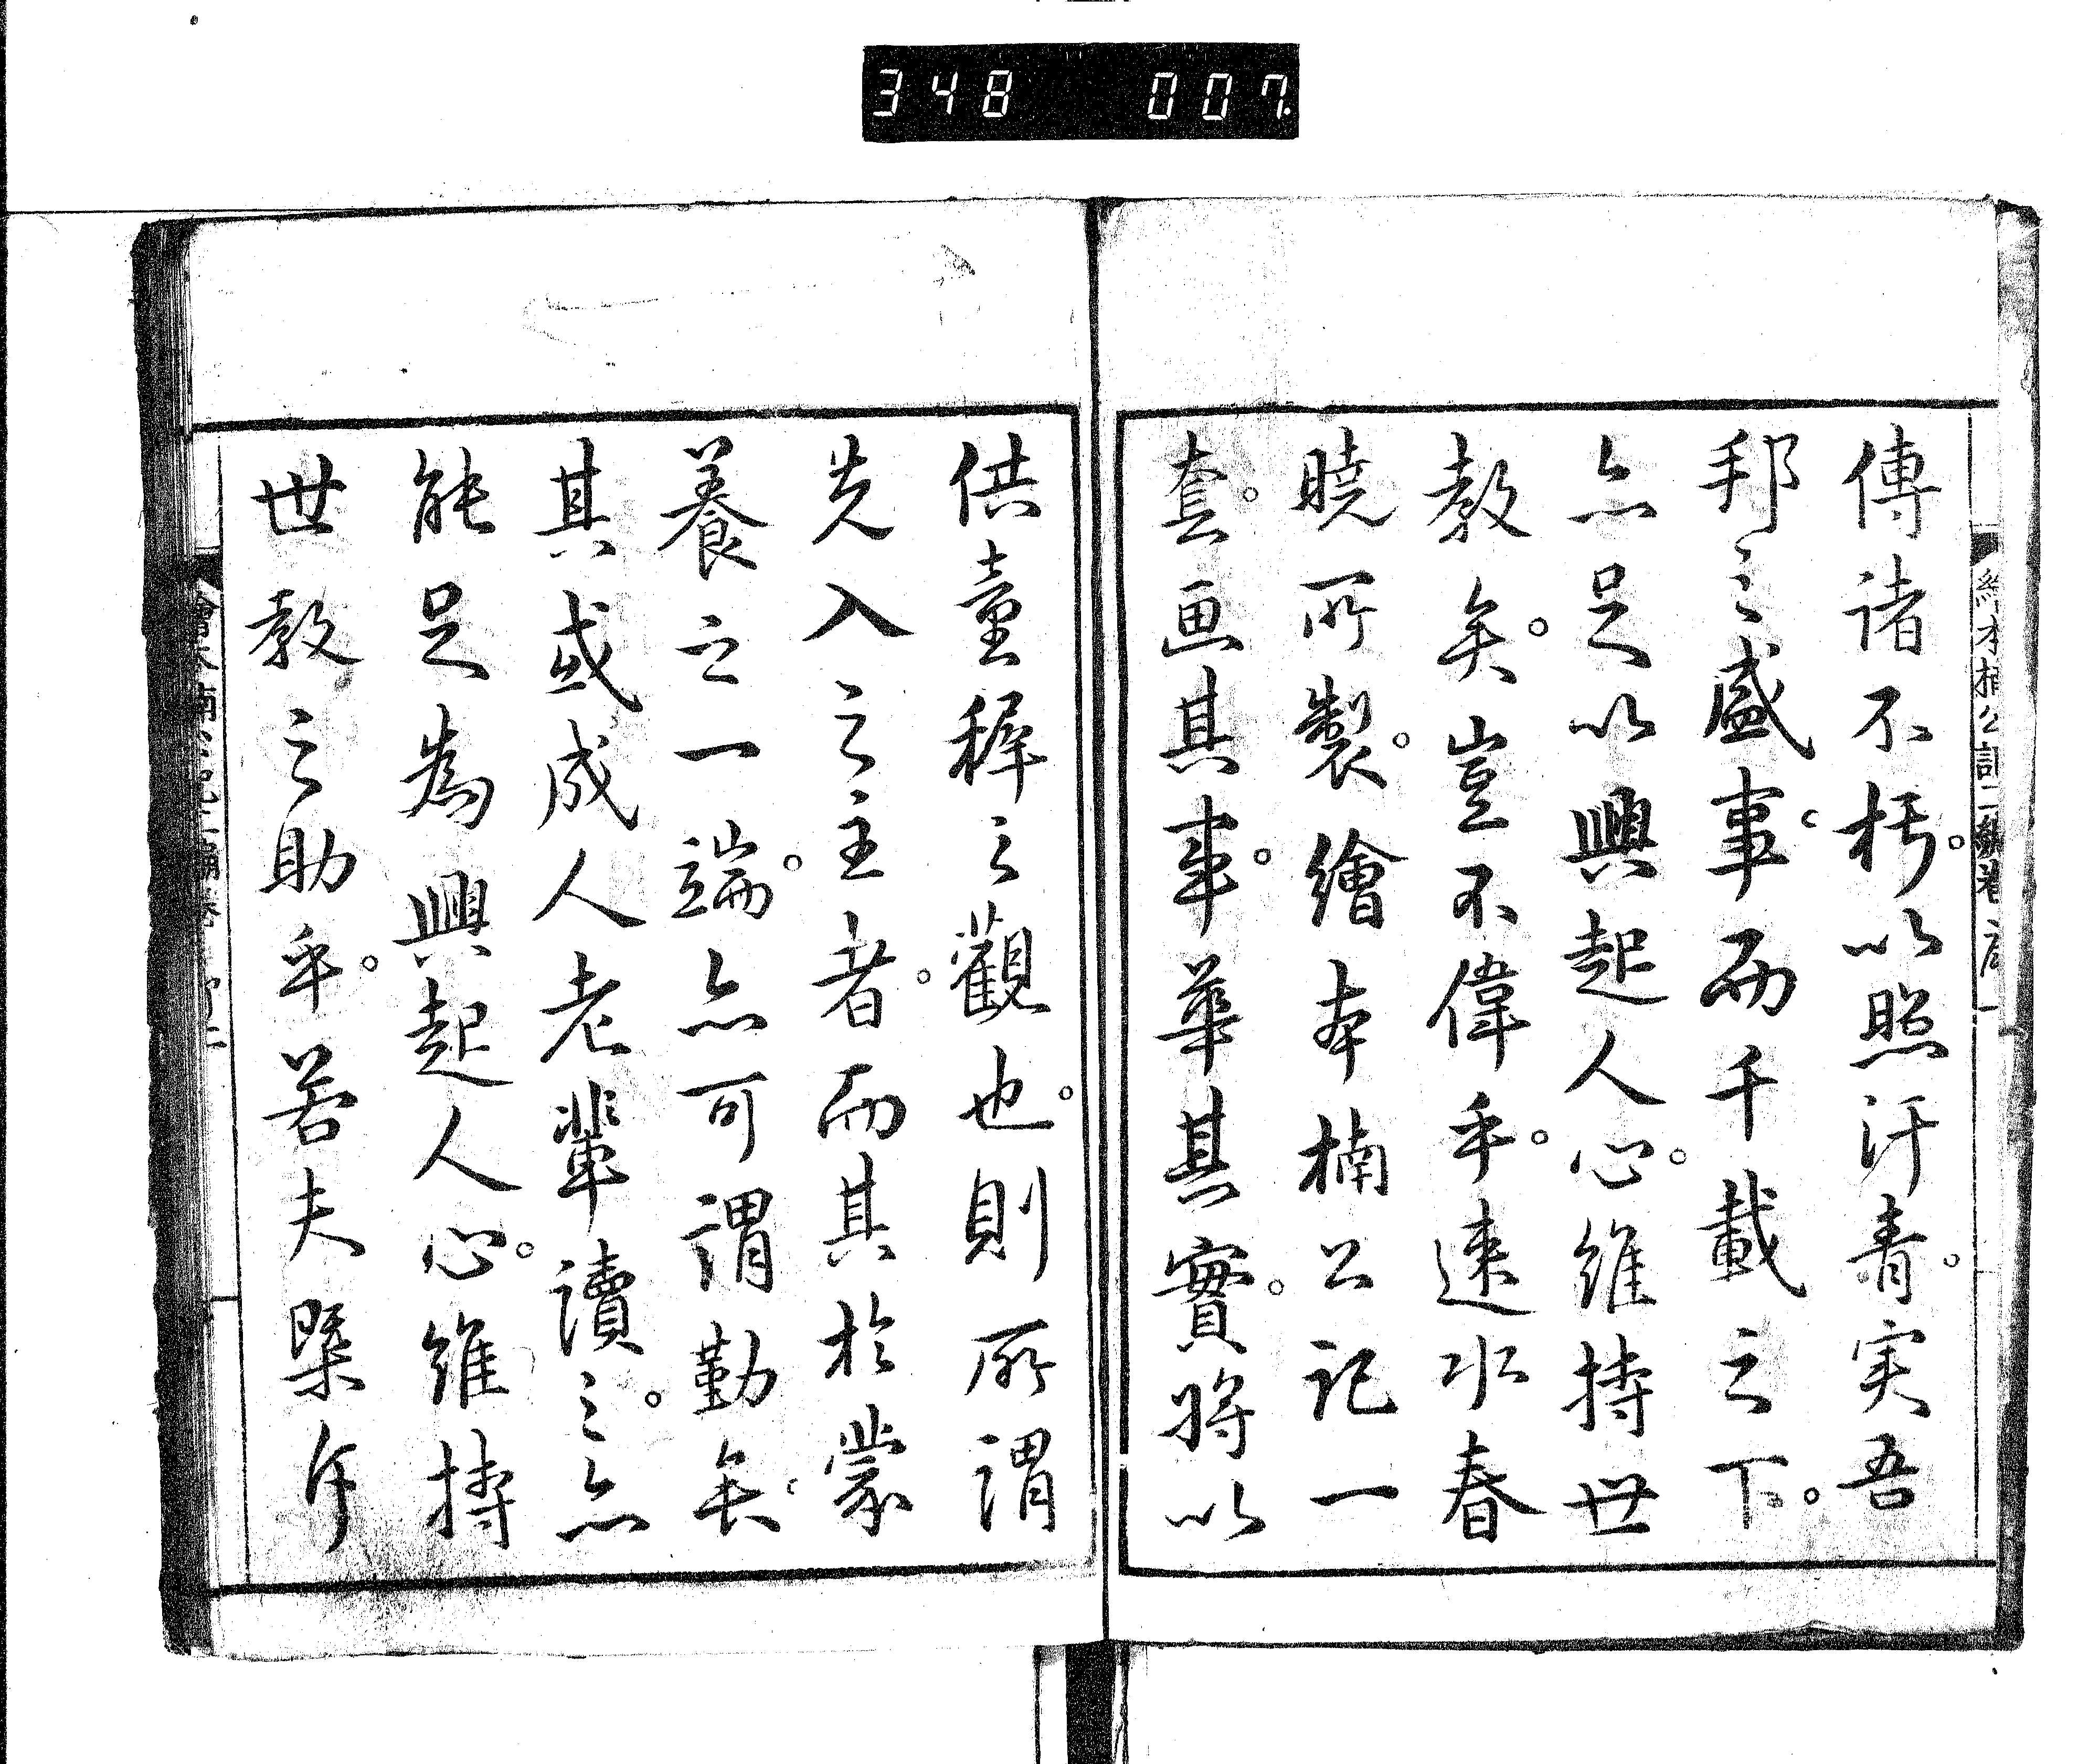 348 007.
傳諸不朽。以照汗青。実吾
邦之盛事。而千載之下。
亦足以興起人心。維持世
教矣。豈不偉乎。速水春
暁所製。繪本楠公記一
套。画其事。華其實。將以
供童穉之觀也。則所謂
先入之主者。而其於蒙
養之一端。亦可謂勤矣。
其或成人老輩讀之。亦
能足為興起人心。維持
世教之助乎。若夫槩斥